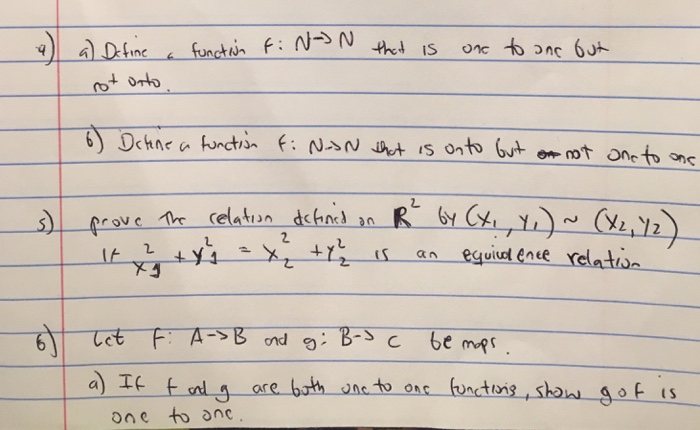 4) a) Define a function f: N→N that is one to one but
not onto.
b) Define a function f: N→N that is onto but not one to one
5) prove the relation defined on R² by (x₁, y₁) ~ (x₂, y₂)
if x₁² + y₁² = x₂² + y₂² is an equivalence relation
6) Let f: A→B and g: B→C be maps.
a) If f and g are both one to one functions, show g o f is
one to one.